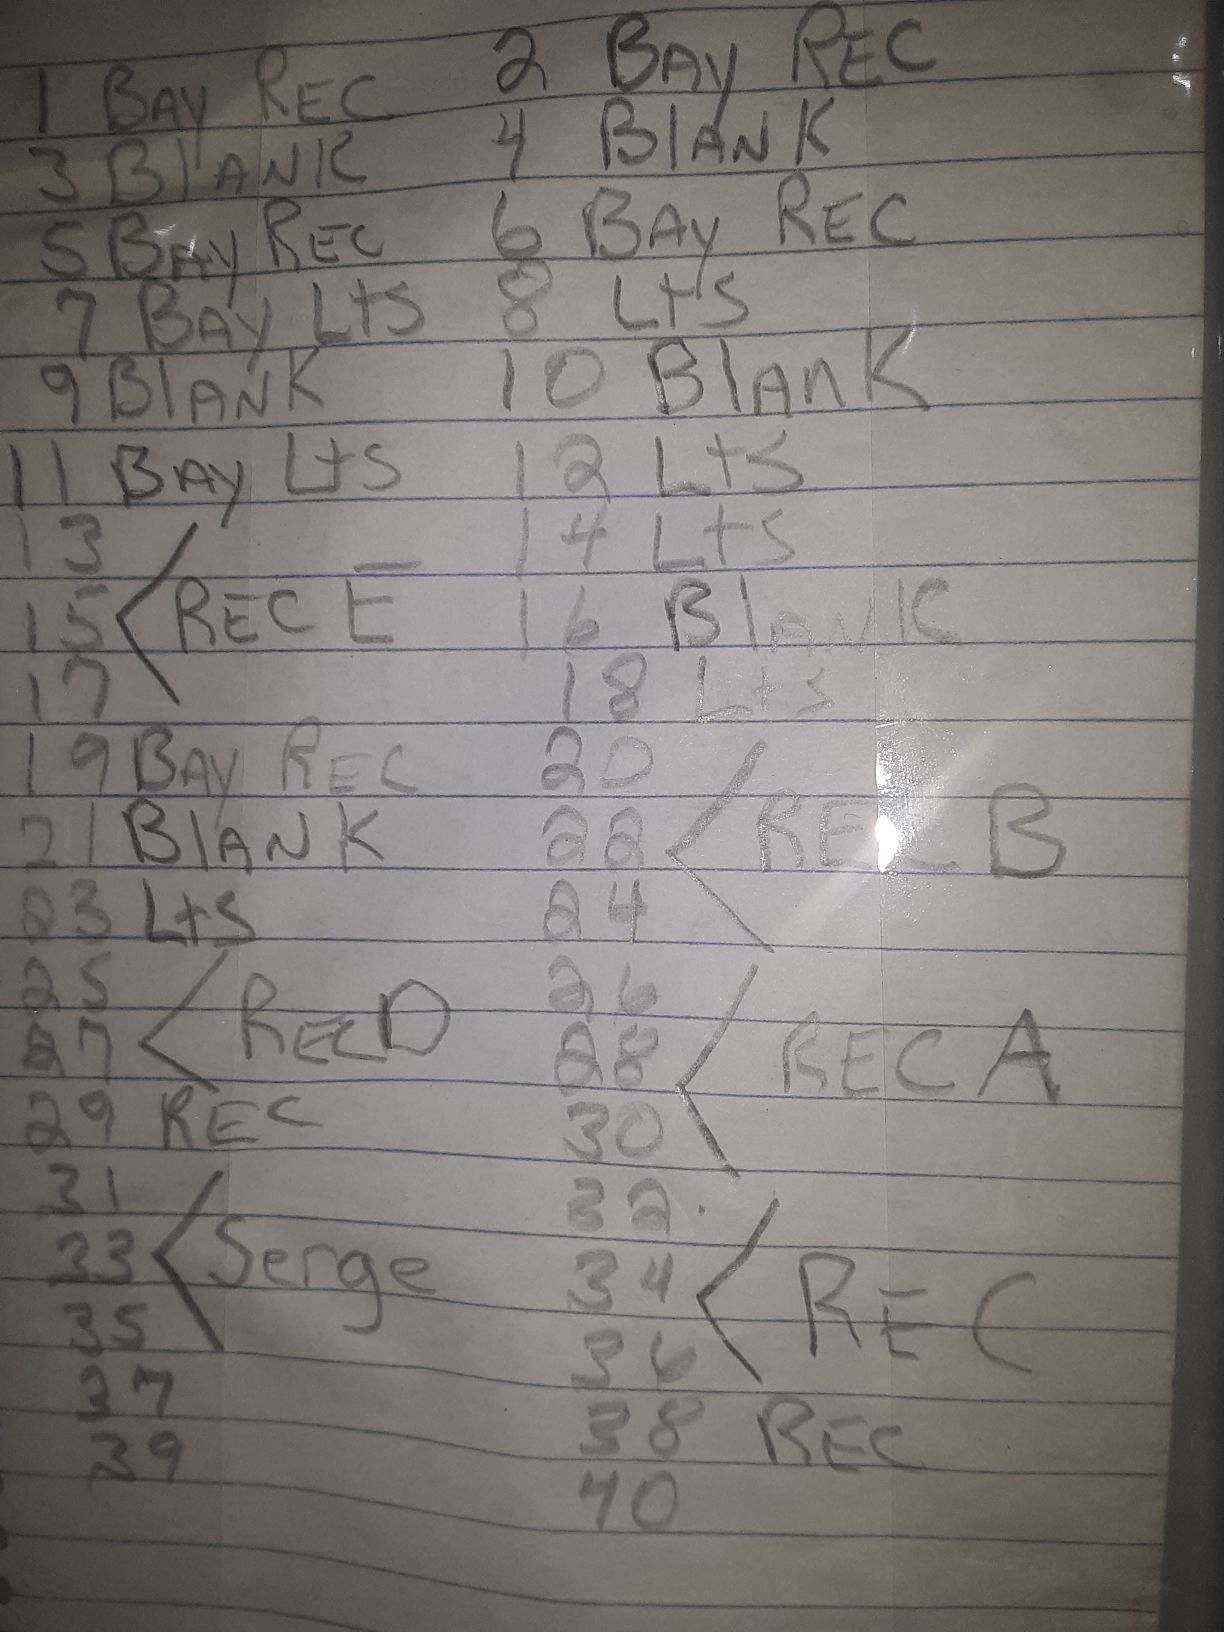 1 BAY REC 2 BAY REC
3 BlANK 4 BlANK
5 BAY REC 6 BAY REC
7 BAY LtS 8 LtS
9 BlANK 10 BlAnK
11 BAY LtS 12 LtS
13 14 LtS
15 REC E 16 BlANK
17 18 LtS
19 BAY REC 20
21 BlANK 22 REC B
23 LtS 24
25 26
27 REC D 28 REC A
29 REC 30
31 32
33 Serge 34 REC
35 36
37 38 REC
39 40